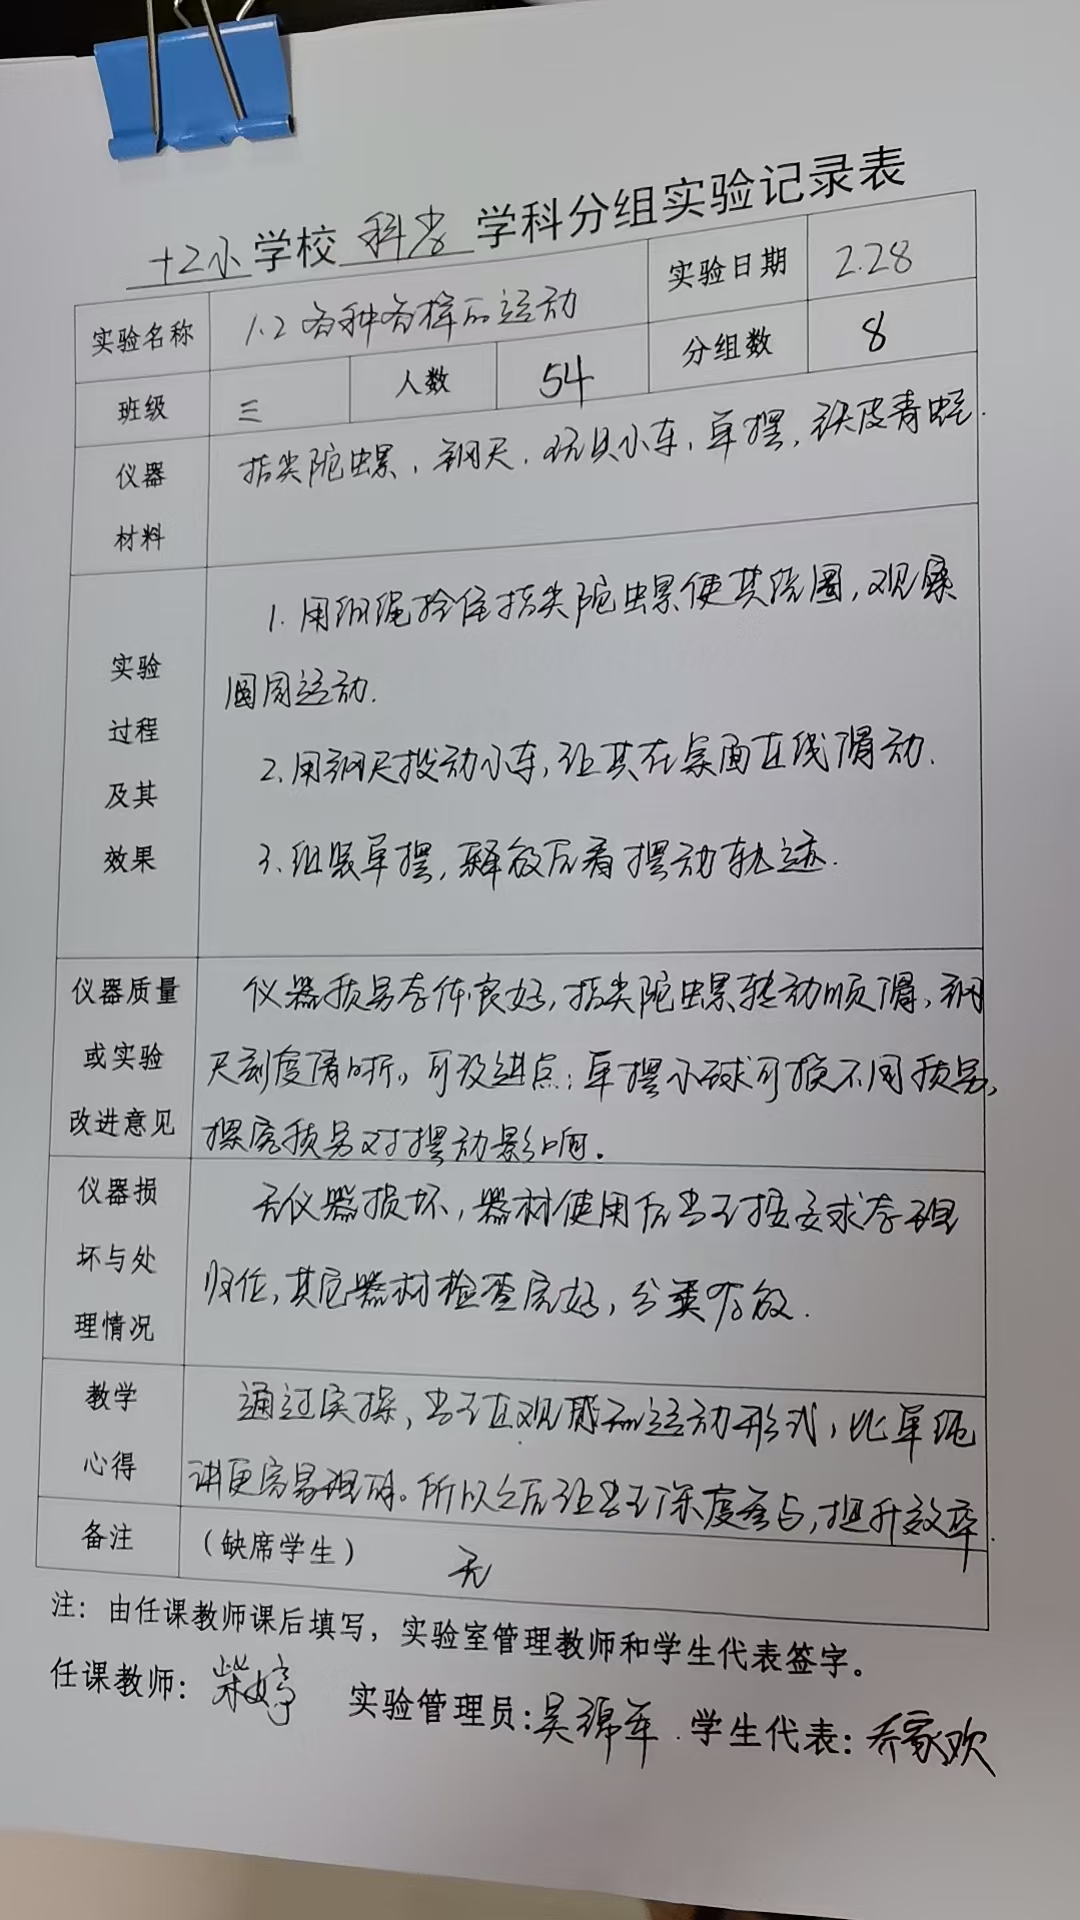 十2小学校 科学 学科分组实验记录表
实验名称 1.2 各种各样的运动 实验日期 2.28
班级 三 人数 54 分组数 8
仪器材料 指尖陀螺、钢尺、玩具小车、单摆、铁皮青蛙.
实验过程及其效果
1.用细绳拴住指尖陀螺使其绕圈,观察
圆周运动.
2.用钢尺拨动小车,让其在桌面直线滑动.
3.组装单摆,释放后看摆动轨迹.
仪器质量或实验改进意见
仪器质量整体良好,指尖陀螺转动顺滑,钢
尺刻度清晰。可改进点:单摆小球可换不同质量,
探究质量对摆动影响。
仪器损坏与处理情况
无仪器损坏,器材使用后学生按要求整理
归位,其它器材检查完好,分类存放.
教学心得
通过实操,学生直观感知运动形式,比单纯
讲更容易理解。所以之后让学生深度参与,提升效率.
备注 (缺席学生) 无
注:由任课教师课后填写,实验室管理教师和学生代表签字。
任课教师: 柴婷 实验管理员: 吴锦军 学生代表: 乔家欢